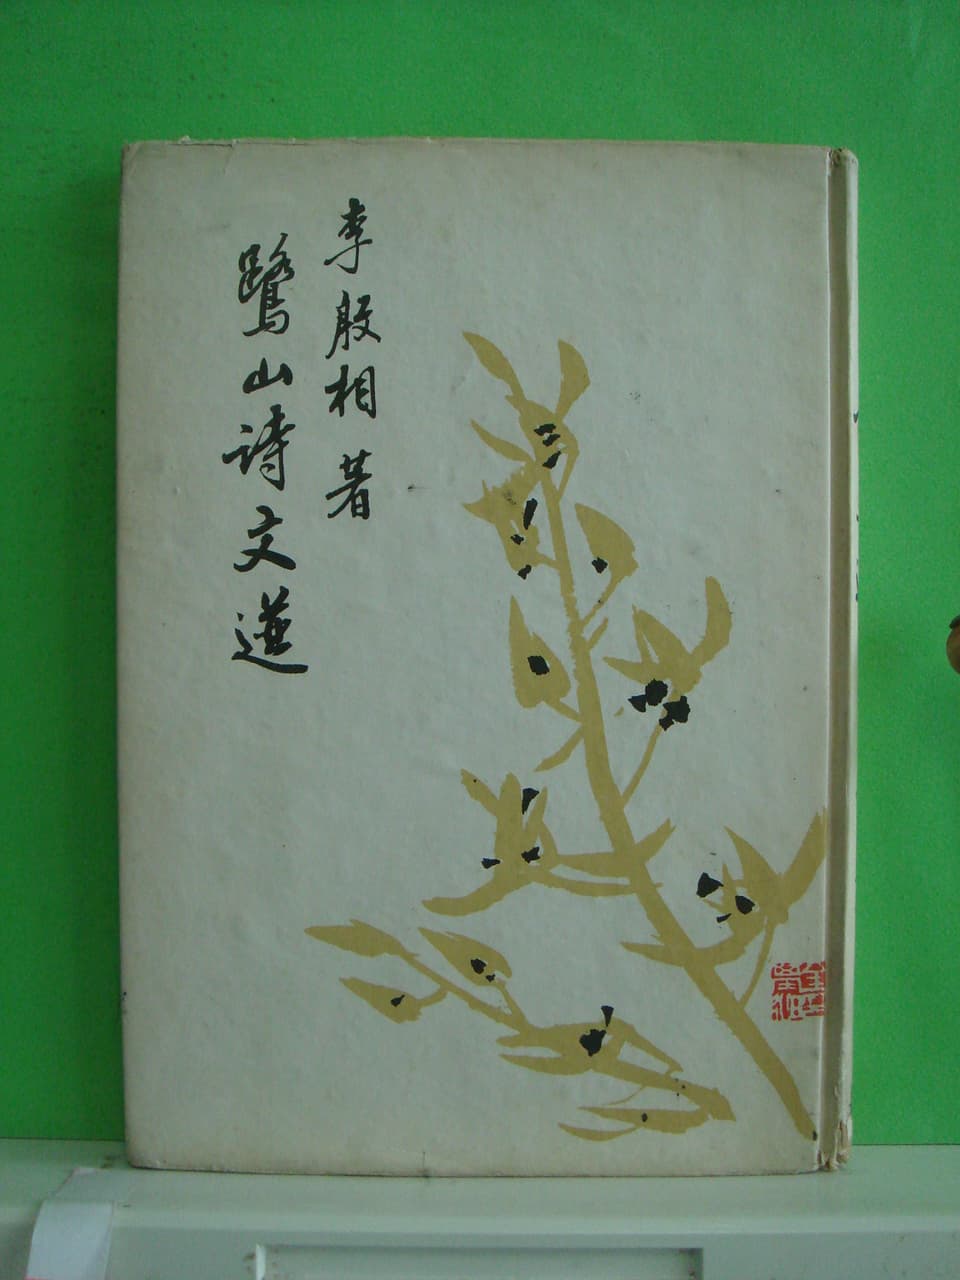 李殷相 著
鷺山詩文選